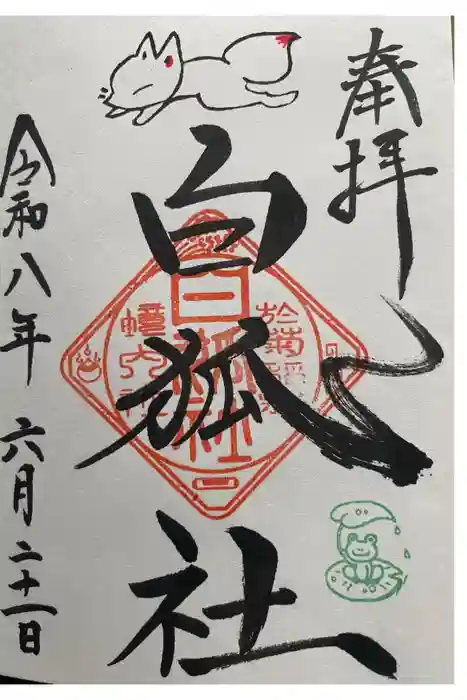 奉拝
白狐社
白狐社
令和八年 六月二十一日